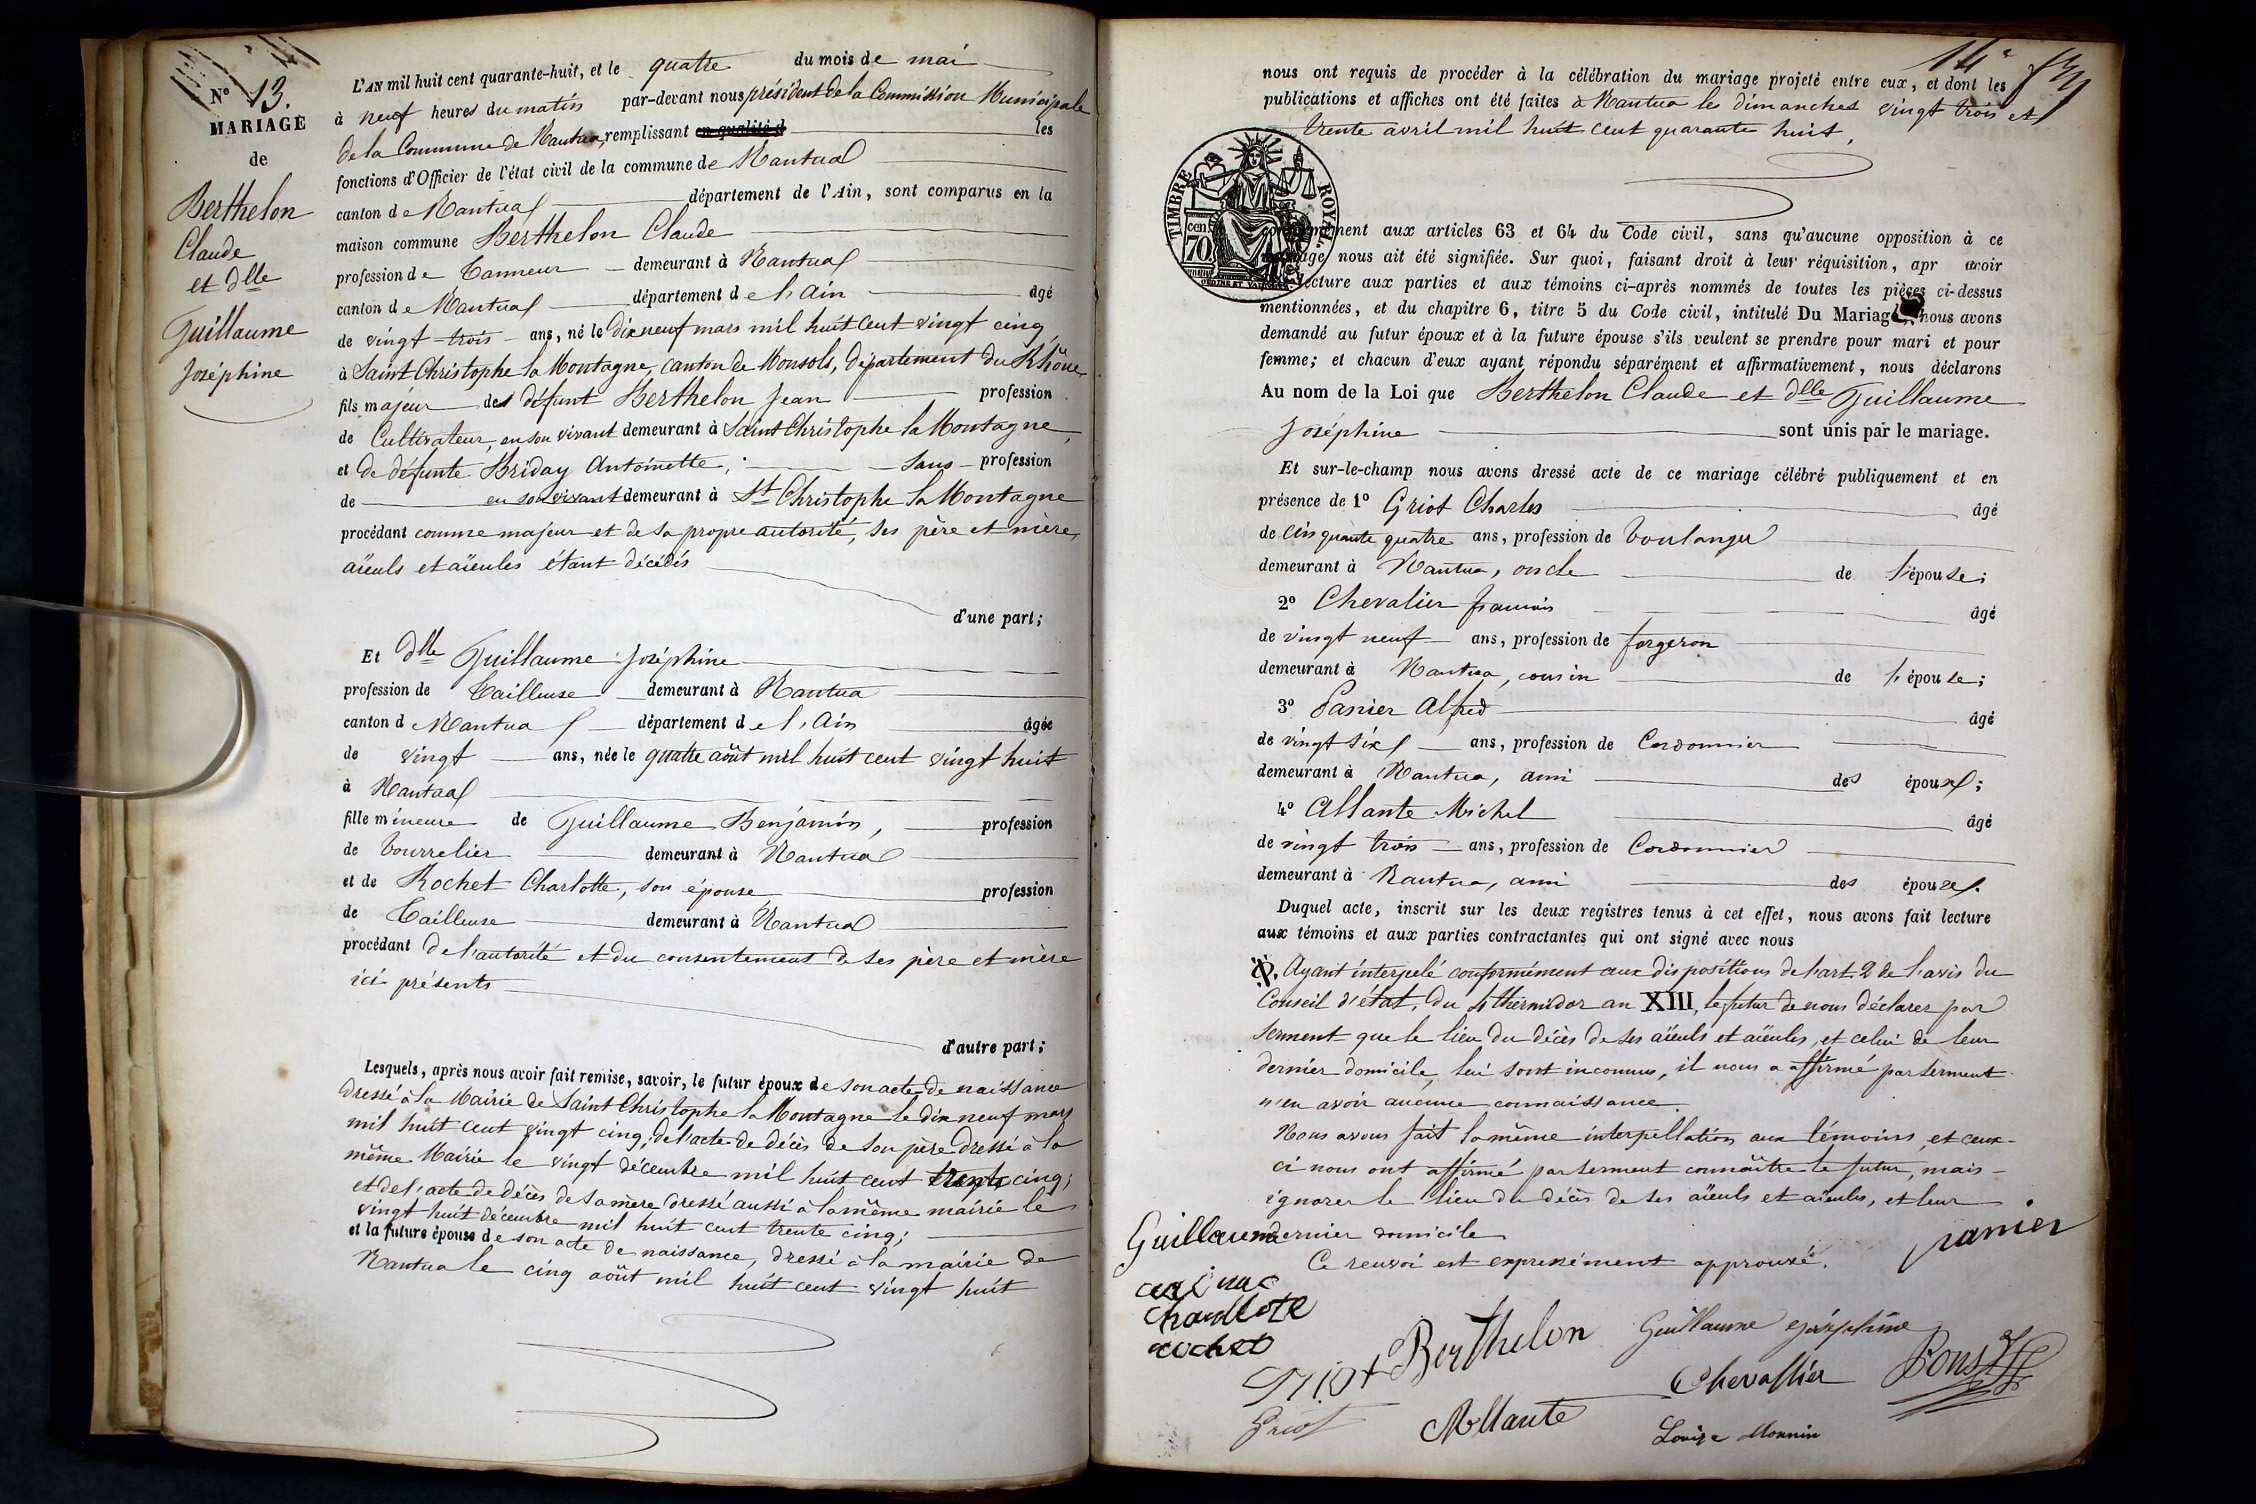 N° 13.
MARIAGE
de
Berthelon
Claude
et dlle
Guillaume
Joséphine
L'AN mil huit cent quarante-huit, et le quatre du mois de mai
à neuf heures du matin par-devant nous président de la Commission Municipale
de la Commune de Nantua, remplissant en qualité d les
fonctions d'Officier de l'état civil de la commune de Nantua
canton de Nantua département de l'Ain, sont comparus en la
maison commune Berthelon Claude
profession de Tanneur demeurant à Nantua
canton de Nantua département de l'Ain âgé
de vingt-trois ans, né le dix neuf mars mil huit cent vingt cinq
à Saint Christophe la Montagne, canton de Monsols, département du Rhône
fils majeur des défunt Berthelon Jean profession
de Cultivateur, en son vivant demeurant à Saint Christophe la Montagne,
et de défunte Briday Antoinette, sans profession
de en son vivant demeurant à St Christophe la Montagne
procédant comme majeur et de sa propre autorité, ses père et mère,
aïeuls et aïeules étant décédés
d'une part;
Et dlle Guillaume Joséphine
profession de Tailleuse demeurant à Nantua
canton d Nantua département de l'Ain âgée
de vingt ans, née le quatre août mil huit cent vingt huit
à Nantua
fille mineure de Guillaume Benjamin, profession
de bourrelier demeurant à Nantua
et de Rochet Charlotte, son épouse profession
de Tailleuse demeurant à Nantua
procédant de l'autorité et du consentement de ses père et mère
ici présents
d'autre part;
Lesquels, après nous avoir fait remise, savoir, le futur époux de son acte de naissance
dressé à la Mairie de Saint Christophe la Montagne le dix neuf mars
mil huit cent vingt cinq; de l'acte de décès de son père dressé à la
même Mairie le vingt décembre mil huit cent trente cinq;
et de l'acte de décès de sa mère dressé aussi à la même mairie le
vingt huit décembre mil huit cent trente cinq;
et la future épouse de son acte de naissance, dressé à la mairie de
Nantua le cinq août mil huit cent vingt huit
14e
nous ont requis de procéder à la célébration du mariage projeté entre eux, et dont les
publications et affiches ont été faites à Nantua les dimanches vingt trois et
trente avril mil huit cent quarante huit,
TIMBRE ROYAL
70 cen
conformément aux articles 63 et 64 du Code civil, sans qu'aucune opposition à ce
mariage nous ait été signifiée. Sur quoi, faisant droit à leur réquisition, apr avoir
lecture aux parties et aux témoins ci-après nommés de toutes les pièces ci-dessus
mentionnées, et du chapitre 6, titre 5 du Code civil, intitulé Du Mariage, nous avons
demandé au futur époux et à la future épouse s'ils veulent se prendre pour mari et pour
femme; et chacun d'eux ayant répondu séparément et affirmativement, nous déclarons
Au nom de la Loi que Berthelon Claude et dlle Guillaume
Joséphine sont unis par le mariage.
Et sur-le-champ nous avons dressé acte de ce mariage célébré publiquement et en
présence de 1° Griot Charles âgé
de cinquante quatre ans, profession de boulanger
demeurant à Nantua, oncle de l'épouse;
2° Chevalier françois âgé
de vingt neuf ans, profession de forgeron
demeurant à Nantua, cousin de l'épouse;
3° Panier Alfred âgé
de vingt six ans, profession de Cordonnier
demeurant à Nantua, ami des époux;
4° Allante Michel âgé
de vingt trois ans, profession de Cordonnier
demeurant à Nantua, ami des époux.
Duquel acte, inscrit sur les deux registres tenus à cet effet, nous avons fait lecture
aux témoins et aux parties contractantes qui ont signé avec nous
Ayant interpelé conformément aux dispositions de l'art. 2 de l'avis du
Conseil d'état, du 4 thermidor an XIII, le futur de nous déclarer par
serment que le lieu du décès de ses aïeuls et aïeules, et celui de leur
dernier domicile, lui sont inconnus, il nous a affirmé par serment
n'en avoir aucune connaissance.
Nous avons fait la même interpellation aux témoins, et ceux-
ci nous ont affirmé par serment connaître le futur, mais
ignorer le lieu du décès de ses aïeuls et aïeules, et leur
dernier domicile
Ce renvoi est expressément approuvé.
Guillaume
panier
charllote
rochet
Berthelon
Guillaume joséphine
Griot
Chevallier
Pons
Griot
Allante
Louise Monnin